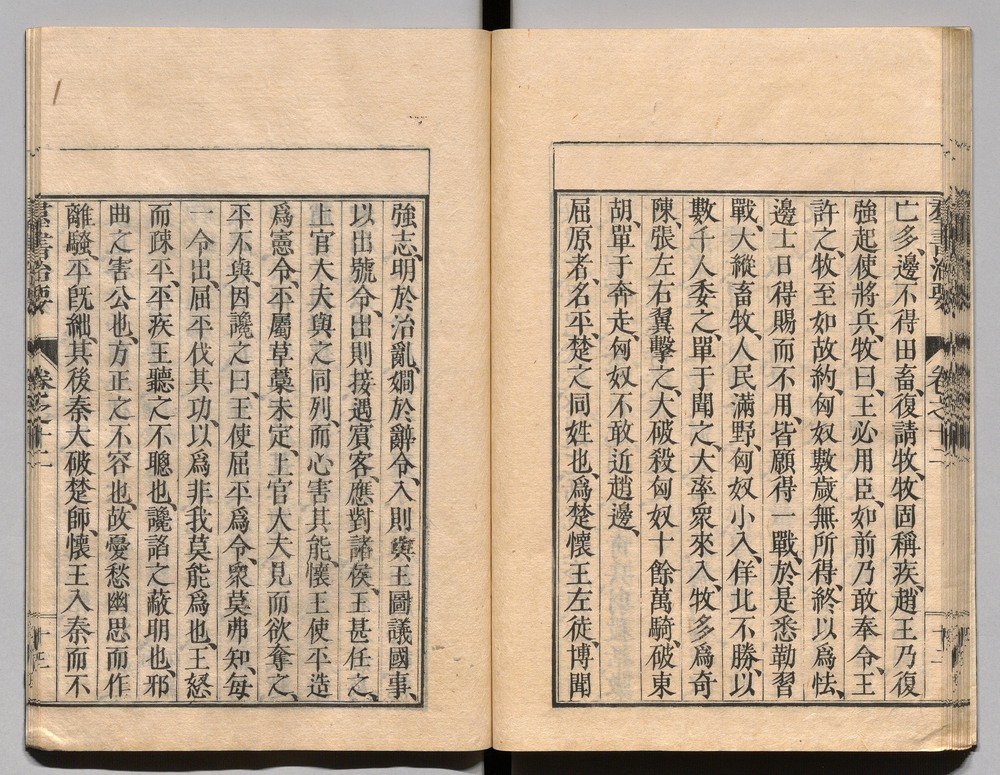 亡多、邊不得田畜、復請牧、牧固稱疾、趙王乃復
強起使將兵、牧曰、王必用臣、如前乃敢奉令、王
許之、牧至如故約、匈奴數歲無所得、終以爲怯、
邊士日得賜而不用、皆願得一戰、於是悉勒習
戰、大縱畜牧、人民滿野、匈奴小入、佯北不勝、以
數千人委之、單于聞之、大率衆來入、牧多爲奇
陳、張左右翼擊之、大破殺匈奴十餘萬騎、破東
胡、單于奔走、匈奴不敢近趙邊、
屈原者、名平、楚之同姓也、爲楚懷王左徒、博聞
強志、明於治亂、嫺於辭令、入則與王圖議國事、
以出號令、出則接遇賓客、應對諸侯、王甚任之、
上官大夫與之同列、而心害其能、懷王使平造
爲憲令、平屬草藁未定、上官大夫見而欲奪之、
平不與、因讒之曰、王使屈平爲令、衆莫弗知、每
一令出、屈平伐其功、以爲非我莫能爲也、王怒
而疎平、平疾王聽之不聰也、讒諂之蔽明也、邪
曲之害公也、方正之不容也、故憂愁幽思而作
離騷、平既絀、其後秦大破楚師、懷王入秦而不
羣書治要 卷之十二 十三